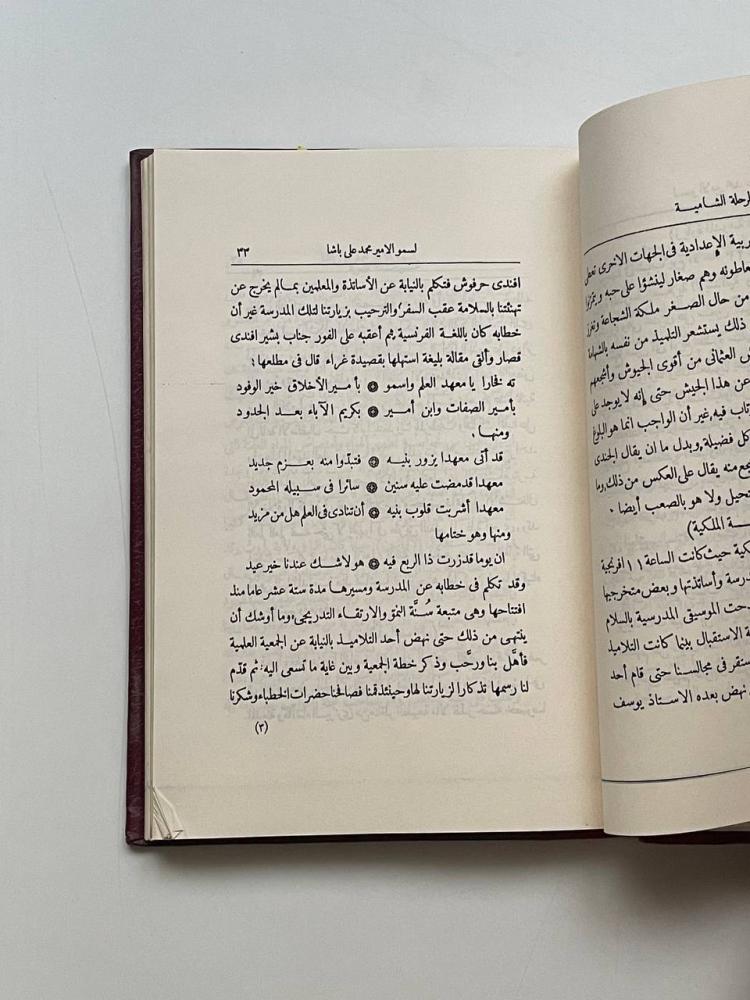 لرحلة الشامية
ربية الإعدادية فى الجهات الاخرى تعطى
عاطونه وهم صغار لينشؤا على حبه و
من حال الصغر ملكة الشجاعة وتغرز
ذلك يستشعر التلميذ من نفسه بالشهامة
ش العثمانى من أقوى الجيوش وأشجعهم
عن هذا الجيش حتى إنه لا يوجد على
تاب فيه, غير أن الواجب انما هو البلوغ
كل فضيلة, وبدل ما ان يقال الجندى
جع منه يقال على العكس من ذلك, وما
تحيل ولا هو بالصعب أيضا .
ـة الملكية)
كية حيث كانت الساعة ١١ افرنجية
درسة وأساتذتها وبعض متخرجيها
دحت الموسيقى المدرسية بالسلام
ة الاستقبال بينما كانت التلاميذ
ستقر فى مجالسنا حتى قام أحد
نهض بعده الاستاذ يوسف
لسمو الامير محمد على باشا ٣٣
افندى حرفوش فتكلم بالنيابة عن الأساتذة والمعلمين بما لم يخرج عن
تهنئتنا بالسلامة عقب السفر والترحيب بزيارتنا لتلك المدرسة غير أن
خطابه كان باللغة الفرنسية, ثم أعقبه على الفور جناب بشير افندى
قصار وألقى مقالة بليغة استهلها بقصيدة غراء قال فى مطلعها :
ته فخارا يا معهد العلم واسمو ۞ بأمير الأخلاق خير الوفود
بأمير الصفات وابن أمير ۞ بكريم الآباء بعد الجدود
ومنها .
قد أتى معهدا يزور بنيه ۞ فتبدّوا منه بعزم جديد
معهدا قد مضت عليه سنين ۞ سائرا فى سبيله المحمود
معهدا أشربت قلوب بنيه ۞ أن تنادى فى العلم هل من مزيد
ومنها وهو ختامها
ان يوما قد زرت ذا الربع فيه ۞ هو لاشك عندنا خير عيد
وقد تكلم فى خطابه عن المدرسة ومسيرها مدة ستة عشر عاما منذ
افتتاحها وهى متبعة سُنَّة النمو والارتقاء التدريجى, وما أوشك أن
ينتهى من ذلك حتى نهض أحد التلاميذ بالنيابة عن الجمعية العلمية
فأهَّل بنا ورحَّب وذكر خطة الجمعية وبين غاية ما تسعى اليه, ثم قدّم
لنا رسمها تذكارا لزيارتنا لها وحينئذ قمنا فصافحنا حضرات الخطباء وشكرنا
(٣)